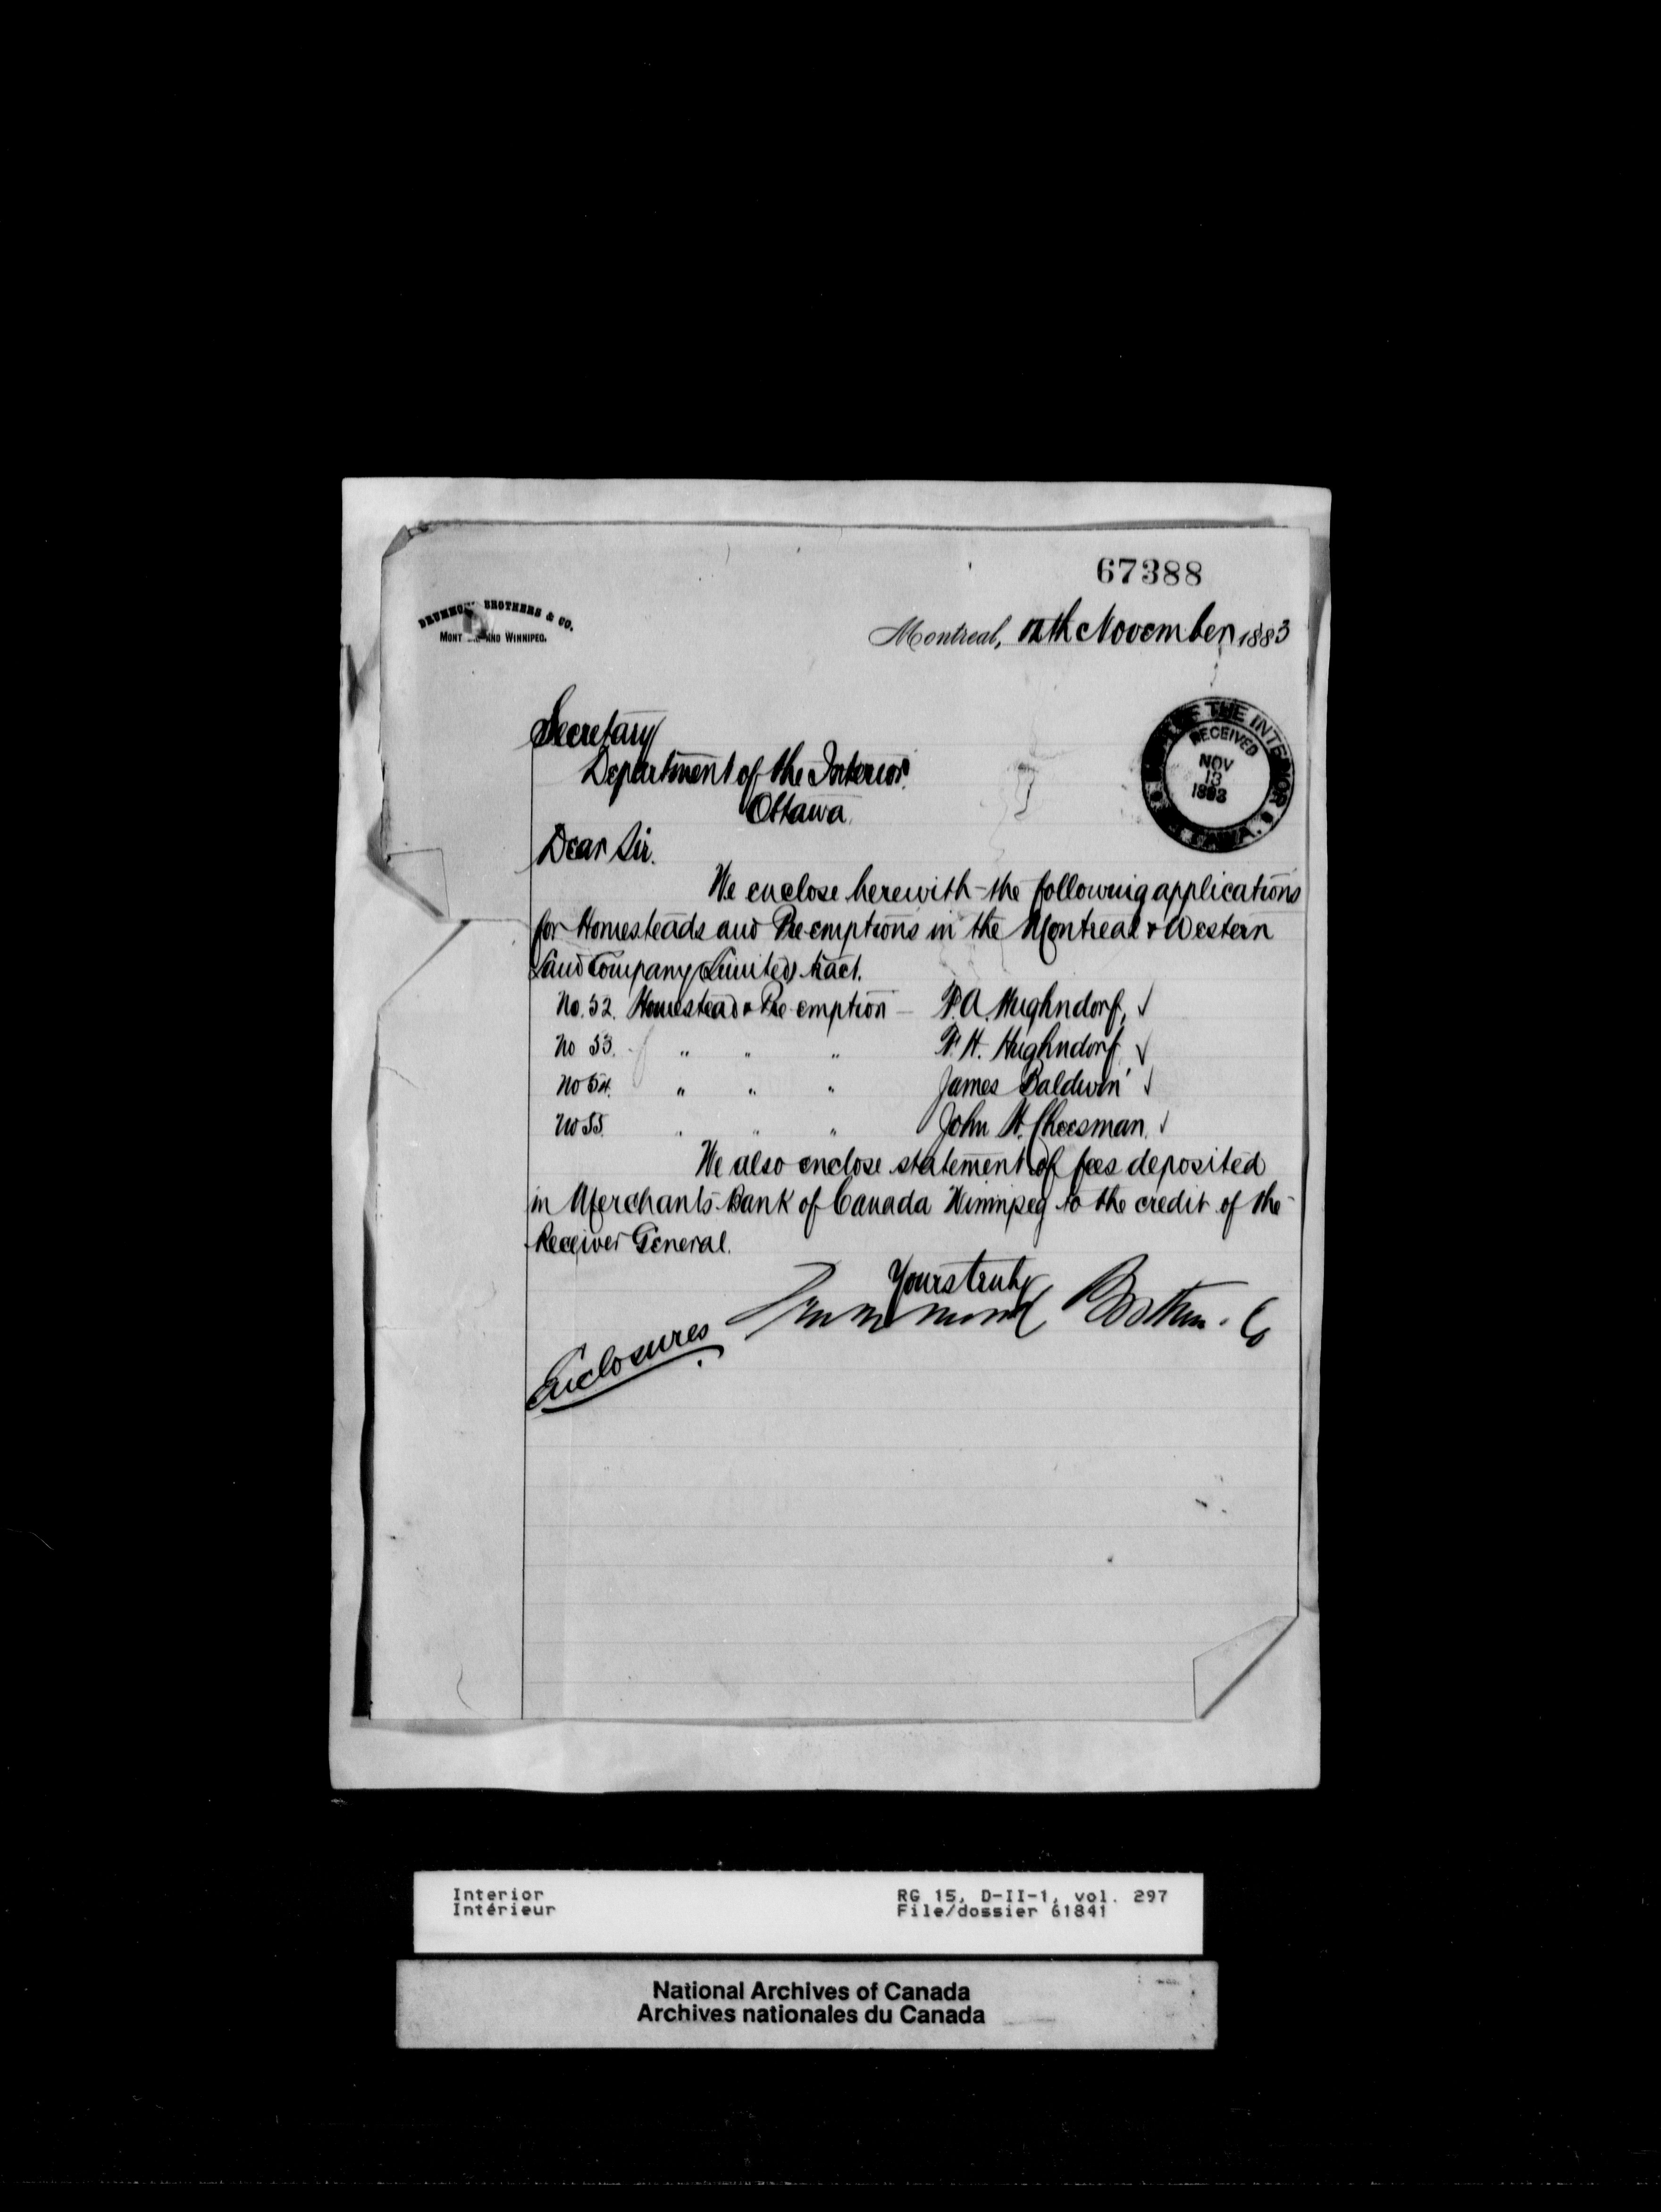 67388
DRUMMOND BROTHERS & CO.
MONT AND WINNIPEG.
Montreal, 12th November 1883
OF THE INTERIOR
RECEIVED
NOV
13
1883
Secretary
Department of the Interior
Ottawa.
Dear Sir.
We enclose herewith the following applications
for Homesteads and Pre-emptions in the Montreal & Western
Land Company (Limited) tract.
No. 52. Homestead & Pre-emption - F. A. Hughndorf, ✓
No 53. " " " F. H. Hughndorf ✓
No 54. " " " James Baldwin ✓
No 55. " " " John H. Cheesman. ✓
We also enclose statement of fees deposited
in Merchants Bank of Canada Winnipeg to the credit of the
Receiver General.
Yours truly
Drummond Brothers & Co
Enclosures
Interior
Intérieur
RG 15, D-II-1, vol. 297
File/dossier 61841
National Archives of Canada
Archives nationales du Canada